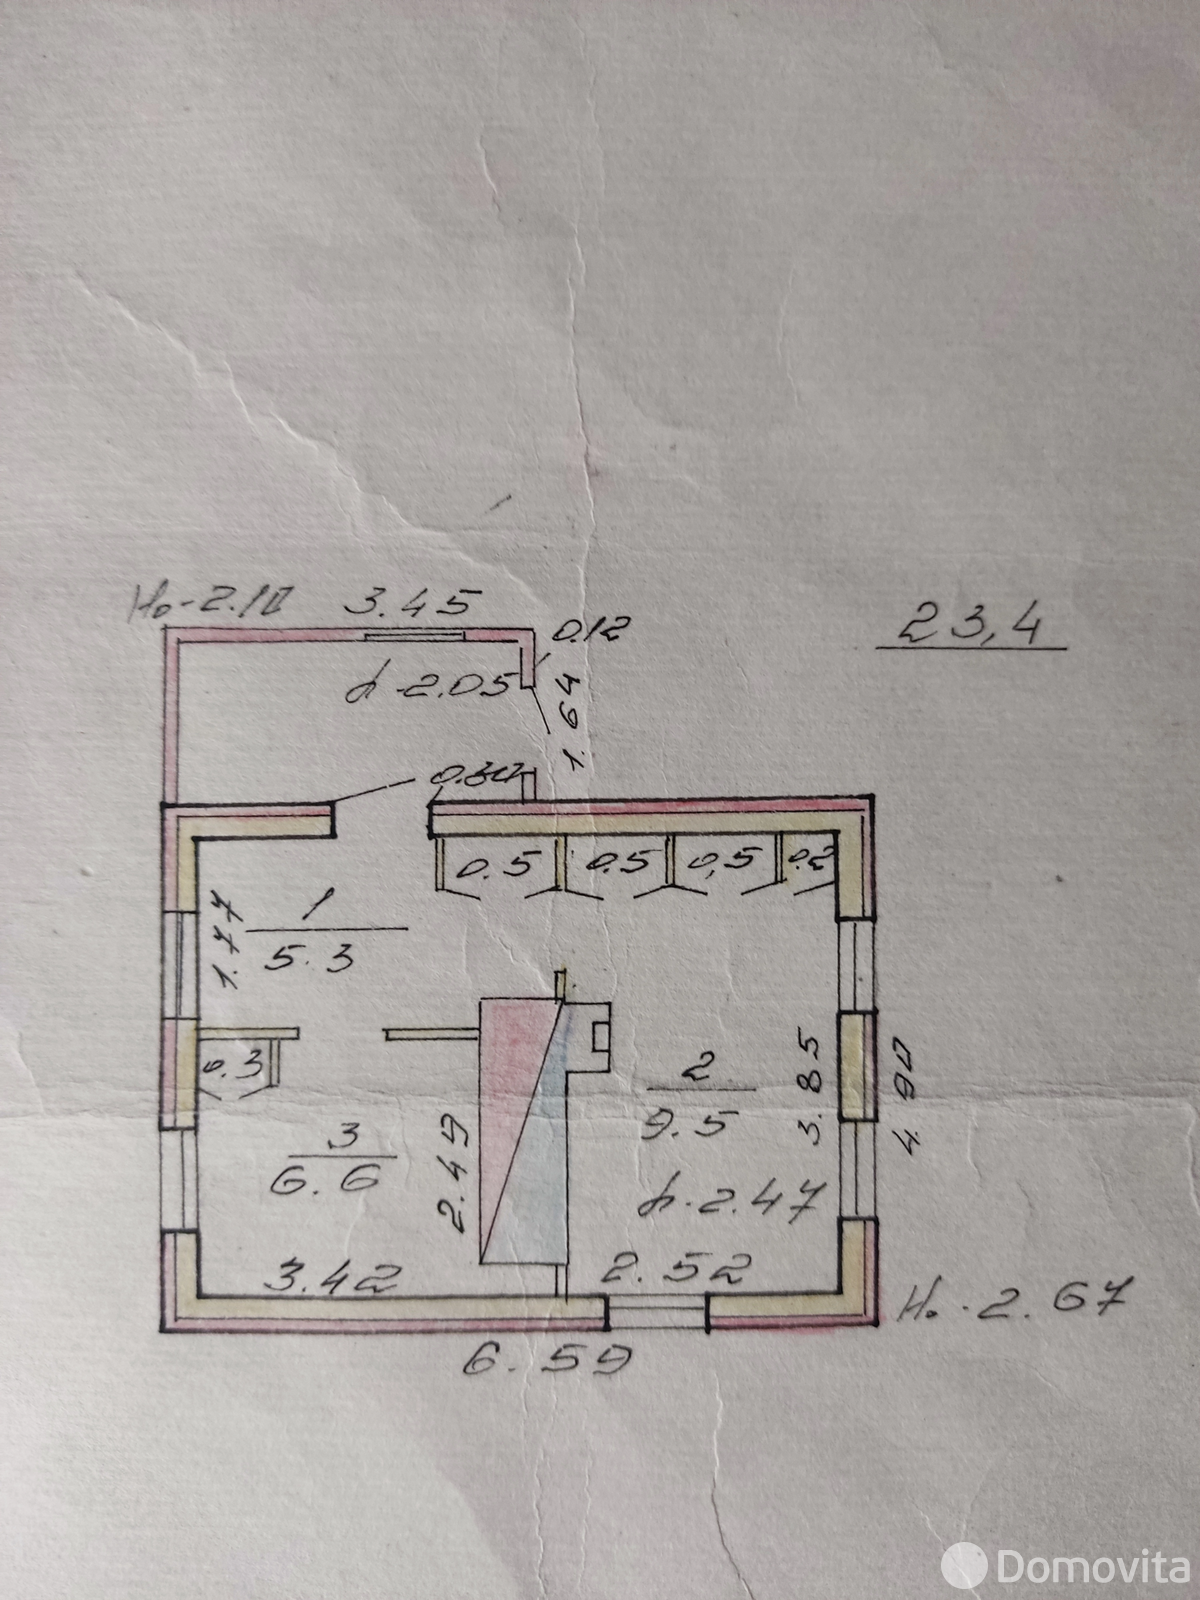 Н.-2.10
3.45
23,4
0.12
h-2.05
1.64
0.30
0.5
0.5
0,5
0.2
1.77
1
5.3
0.3
2
9.5
3.85
4.90
3
6.6
2.49
h-2.47
3.42
2.52
Н.-2.67
6.59
Domovita